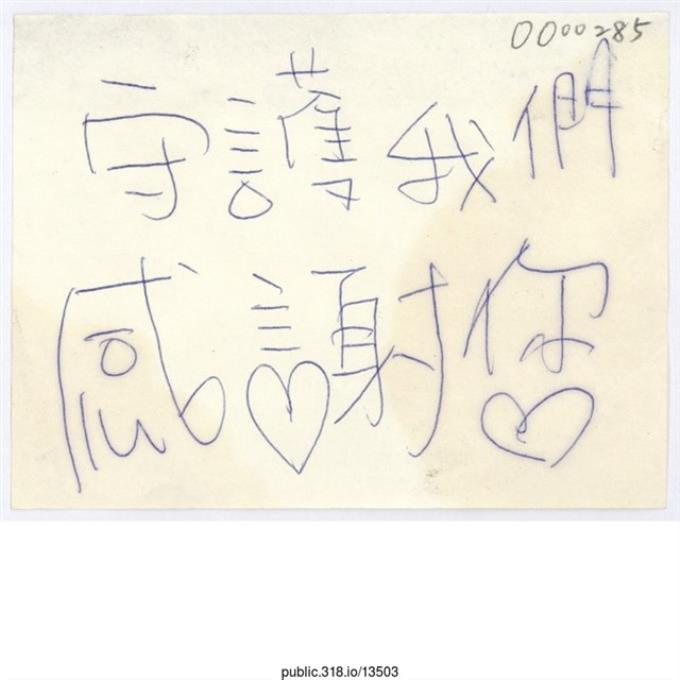 0000285
守護我們
感謝您
public.318.io/13503